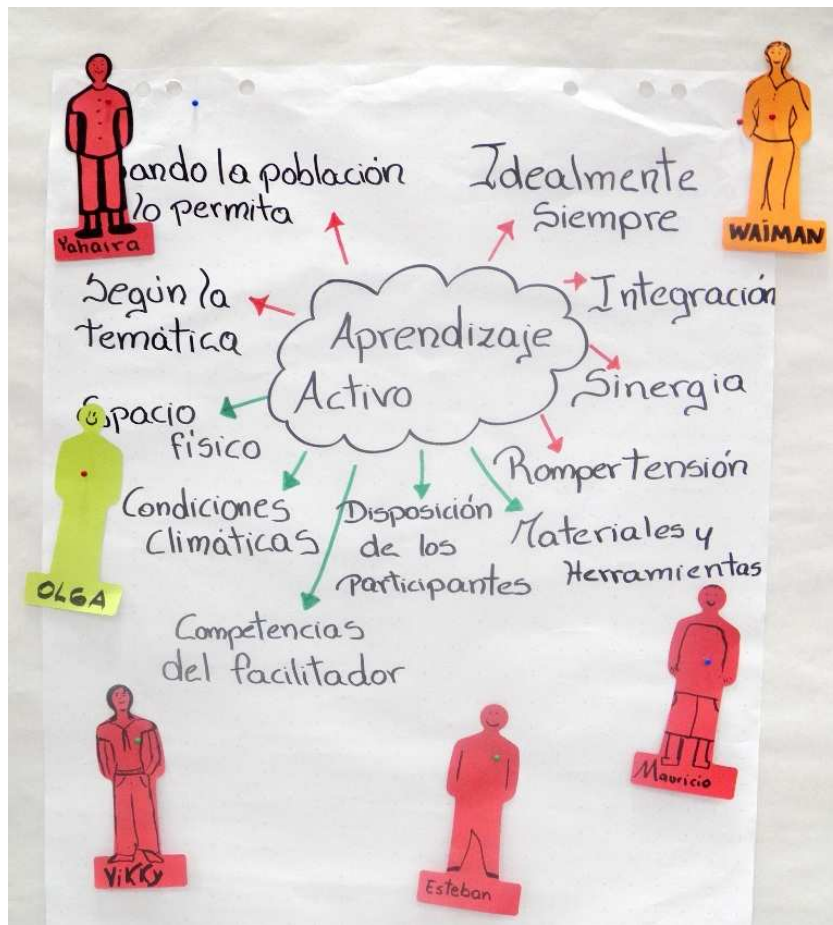 ando la población
lo permita
Idealmente
Siempre
Yahaira
WAIMAN
Según la
temática
Integración
Aprendizaje
Activo
Sinergia
spacio
físico
Romper tensión
Condiciones
Climáticas
Disposición
de los
participantes
Materiales y
Herramientas
OLGA
Competencias
del facilitador
Mauricio
ViKKy
Esteban